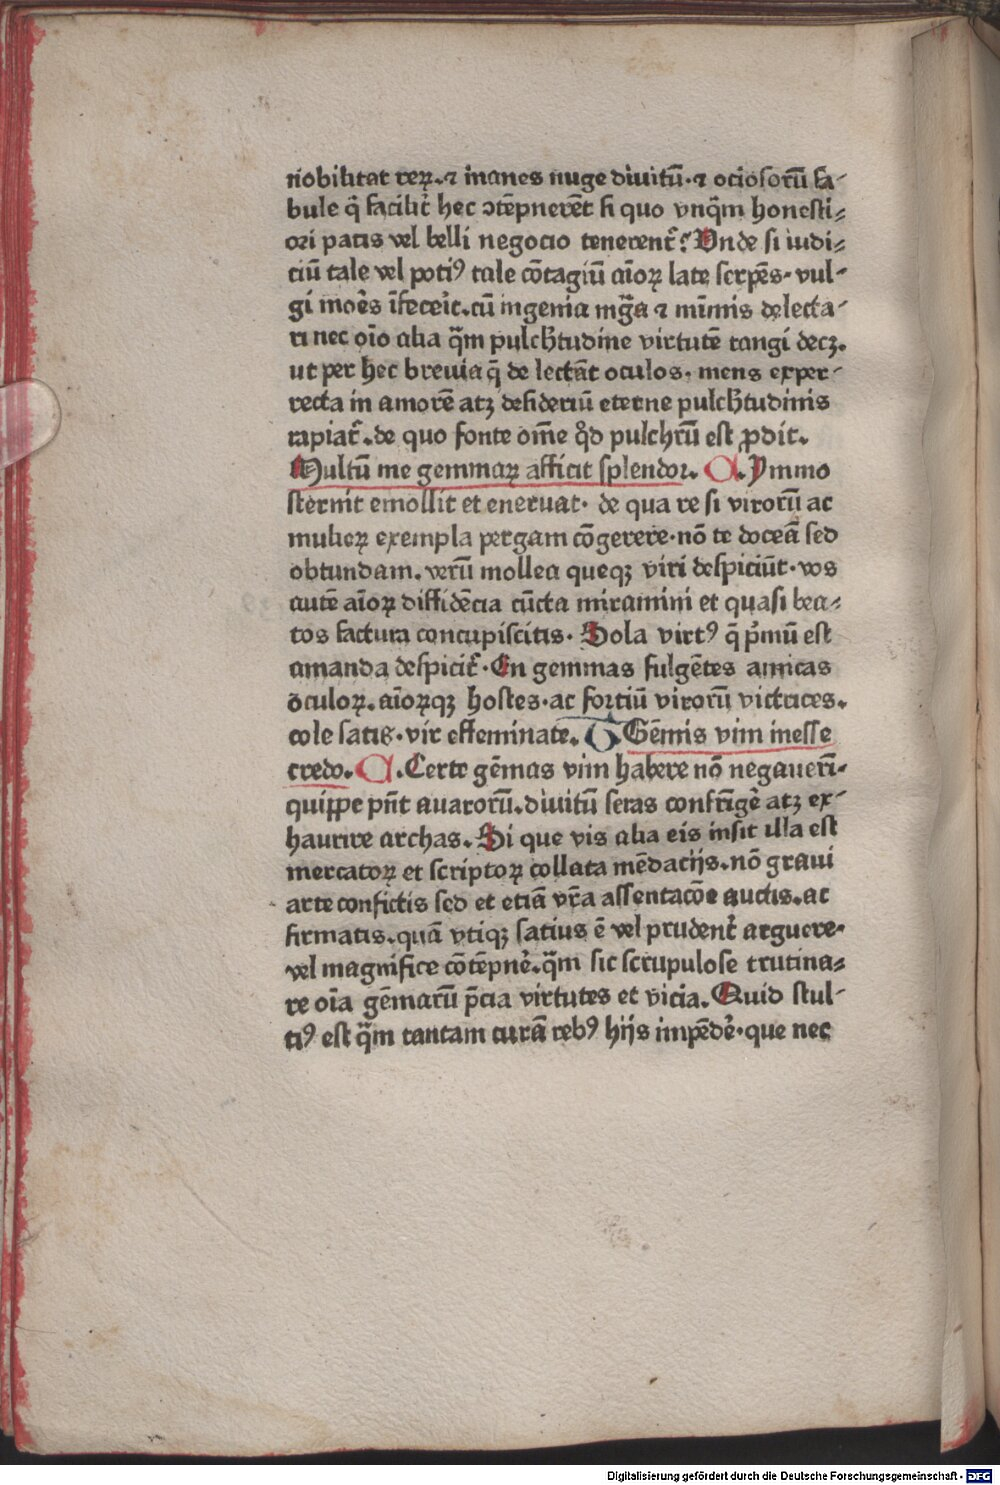 nobilitat reꝝ.⁊ inanes nuge diuitū.⁊ ociosorū fa-
bule q̄ facilit̃ hec ↄtēpnerēt si quo vnq̃m honesti⸗
ori pacis vel belli negocio tenerent̃? Vnde si iudi⸗
ciū tale vel potiꝰ tale cōtagiū aīoꝝ late serpēs. vul-
gi mores īfecer̄it.cū ingenia mg̃a ⁊ mīmis delecta-
ri nec oīo alia q̃m pulcħtudine virtutē tangi decꝫ.
ut per hec breuia q̄ de lectāt oculos. mens exper-
recta in amorē atꝫ desideriū eterne pulcħtudinis
rapiat̃.de quo fonte om̄e qͦd pulchrū est ꝓdit.
Multū me gemmaꝝ afficit splendor. R. Ymmo
sternit emollit et eneruat. de qua re si virorū ac
mulieꝝ exempla pergam cōgerere.nō te doceā sed
obtundam. verū mollea queqꝫ viri despiciūt. vos
autē aīoꝝ diffidēcia cūcta miramini et quasi bea⸗
tos factura concupiscitis. Sola virtꝰ q̄ p̄mū est
amanda despicit̃. En gemmas fulgētes amicas
oculoꝝ.aīoꝝqꝫ hostes.ac fortiū virorū victrices.
cole satis.vir effeminate. G Gēmis vim inesse
credo. R.Certe gēmas vim habere nō negauerī.
quippe pn̄t auarorū.diuitū seras confrīgē atꝫ ex-
haurire archas. Si que vis alia eis insit illa est
mercatoꝝ et scriptoꝝ collata mēdacijs.nō graui
arte confictis sed et etiā vr̄a assentacōe auctis.ac
firmatis.quā vtiqꝫ satius ē vel prudent̃ arguere.
vel magnifice cōtēpnē̄.q̃m sic scrupulose trutina⸗
re oīa gēmarū p̄cia virtutes et vicia. Quid stul-
tiꝰ est q̃m tantam curā rebꝰ hijs impēdē̄.que nec
Digitalisierung gefördert durch die Deutsche Forschungsgemeinschaft - DFG